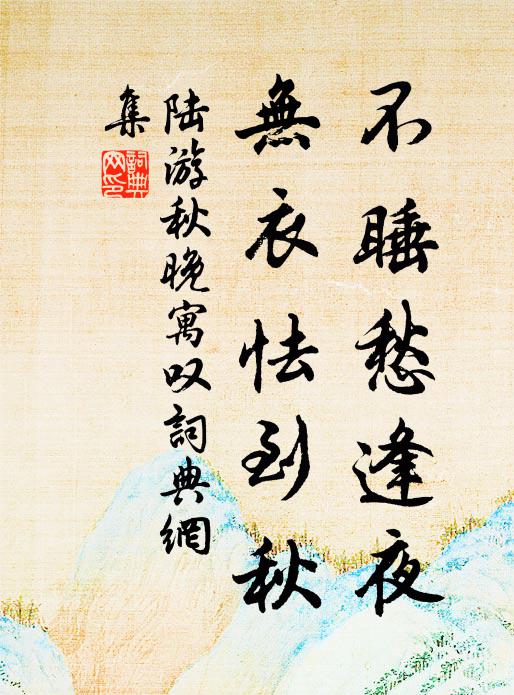 不睡愁逢夜
無衣怯到秋
陆游秋晚寓叹詞典網
集
詞典
网印